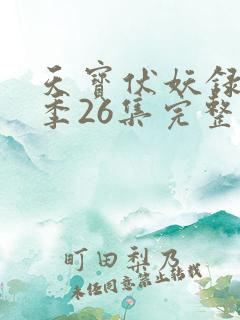 天寶伏妖録
季26集完整
町田梨乃
未经同意禁止转载